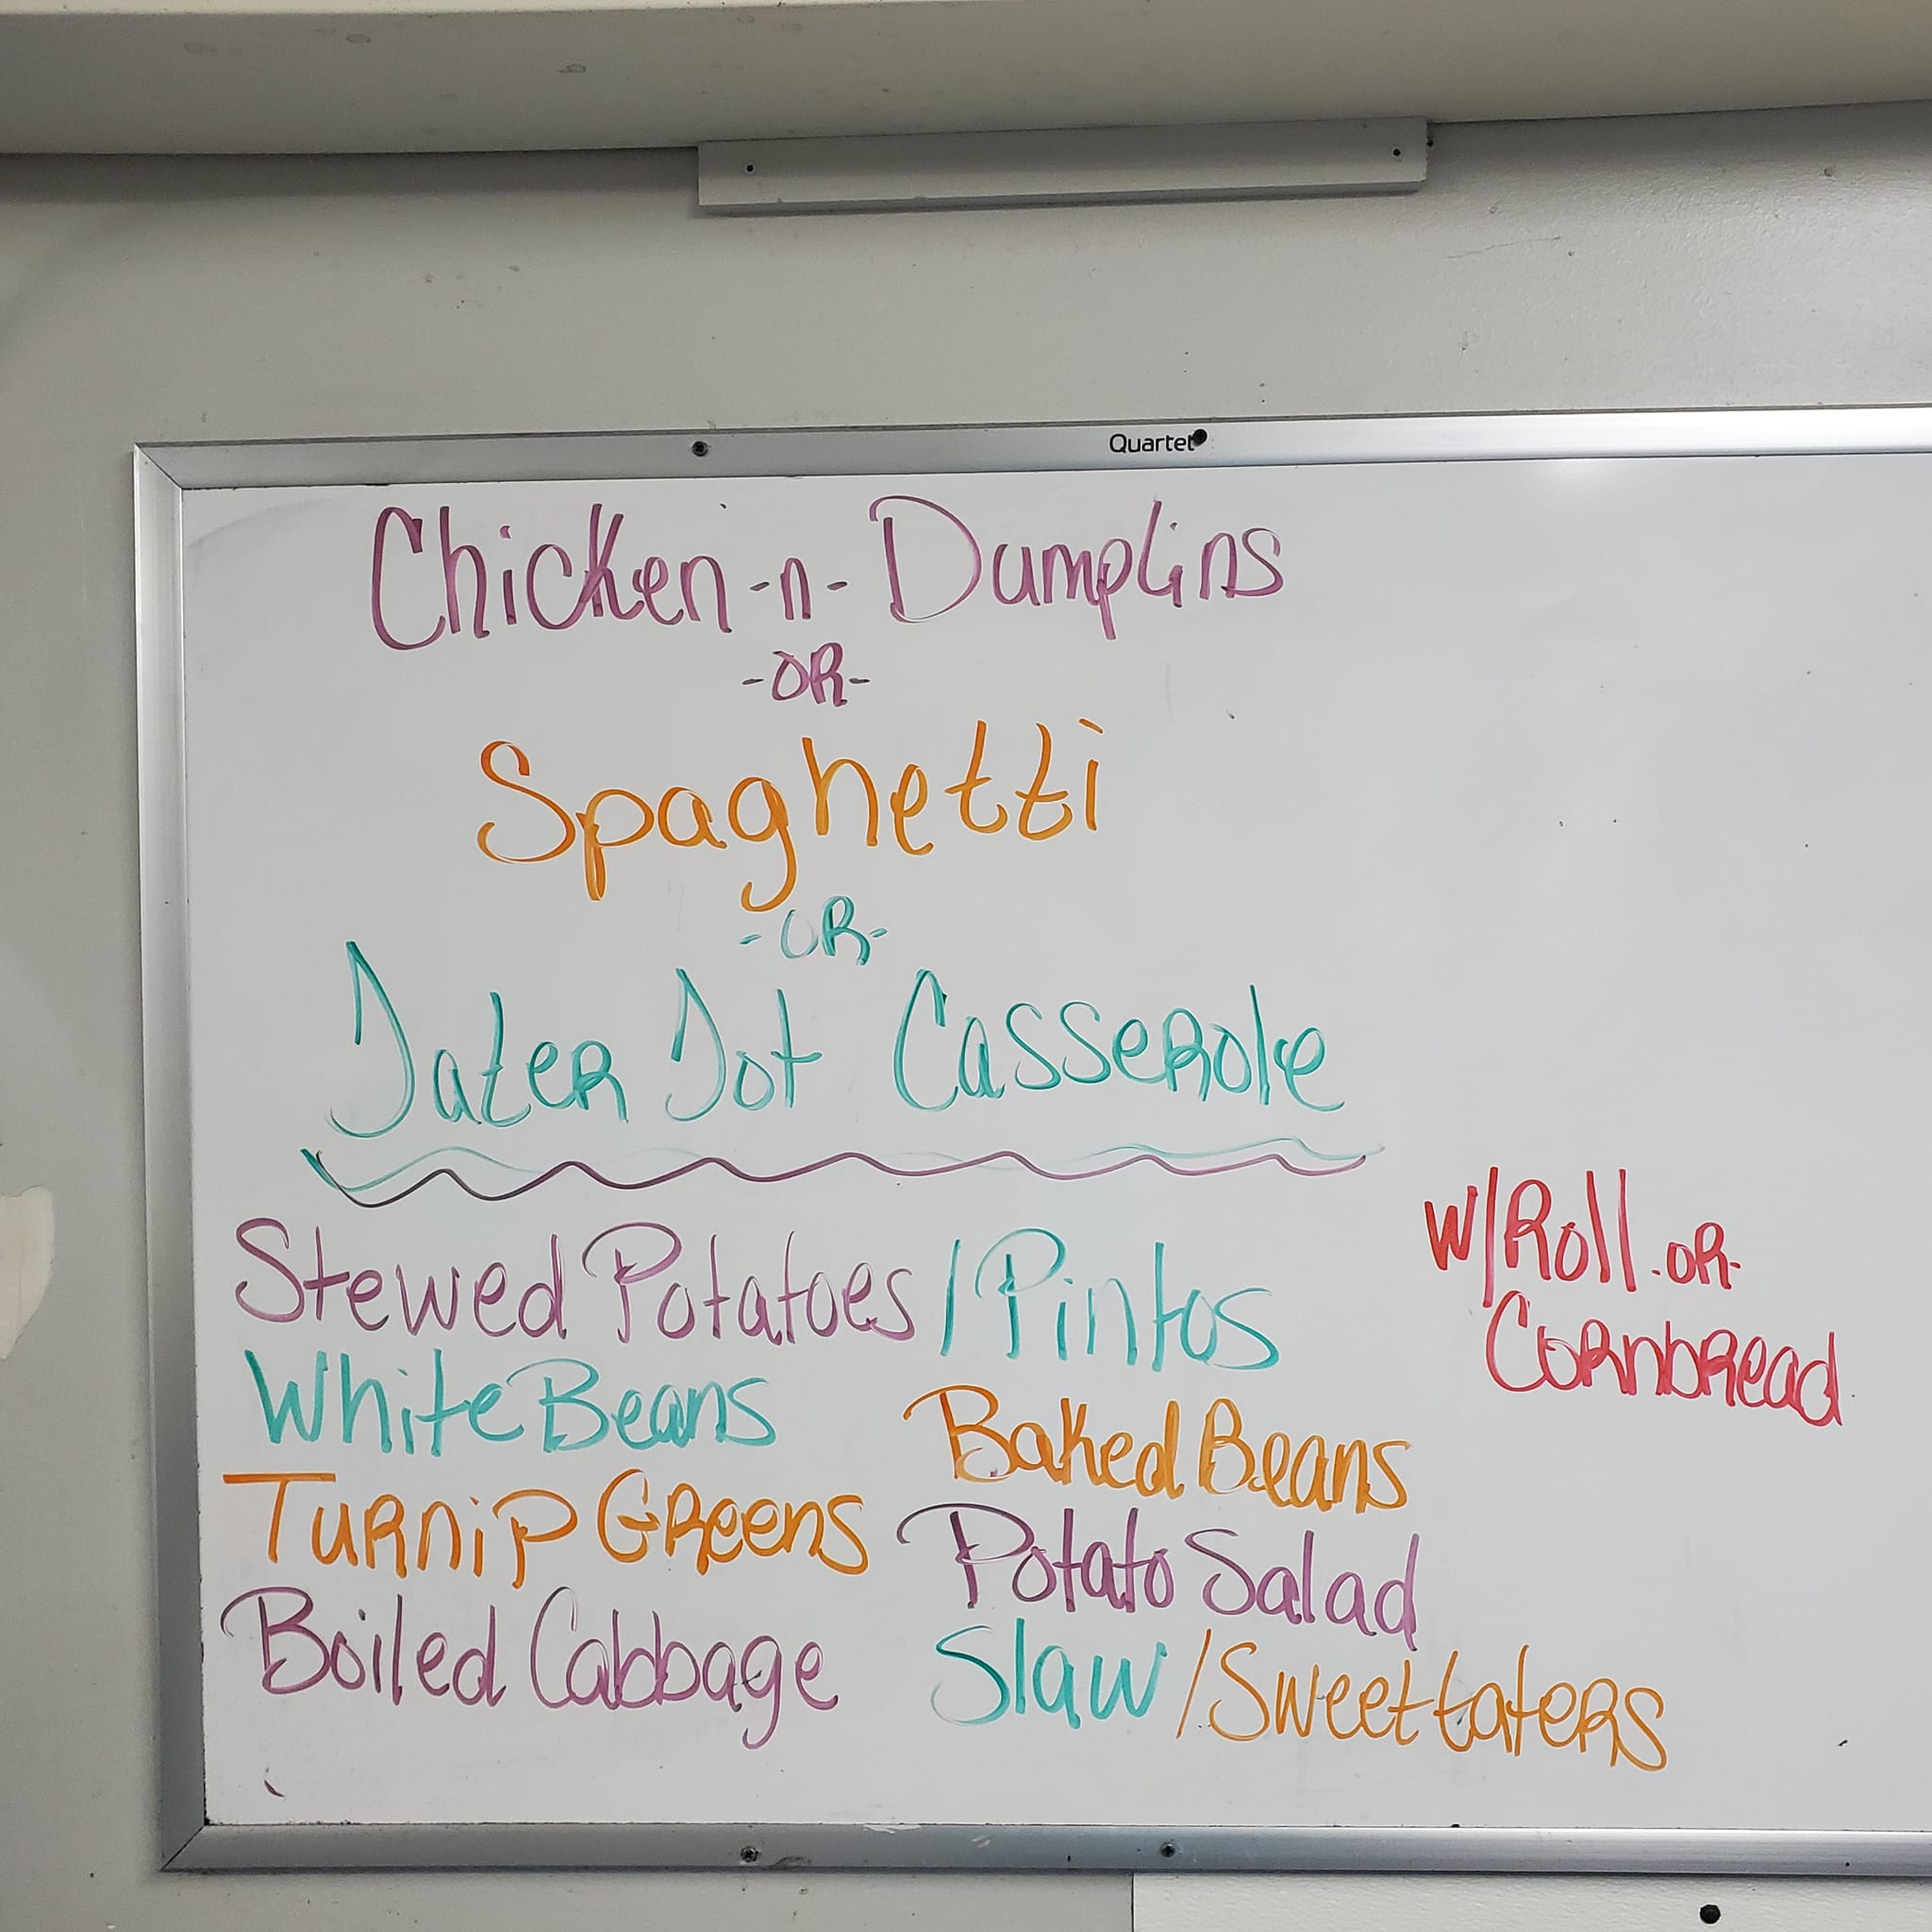 Quartet
Chicken -n- Dumplins
-OR-
Spaghetti
-OR-
Tater Tot Casserole
Stewed Potatoes / Pintos
White Beans
Baked Beans
Turnip Greens
Potato Salad
Boiled Cabbage
Slaw / Sweet taters
W/Roll -OR-
Cornbread